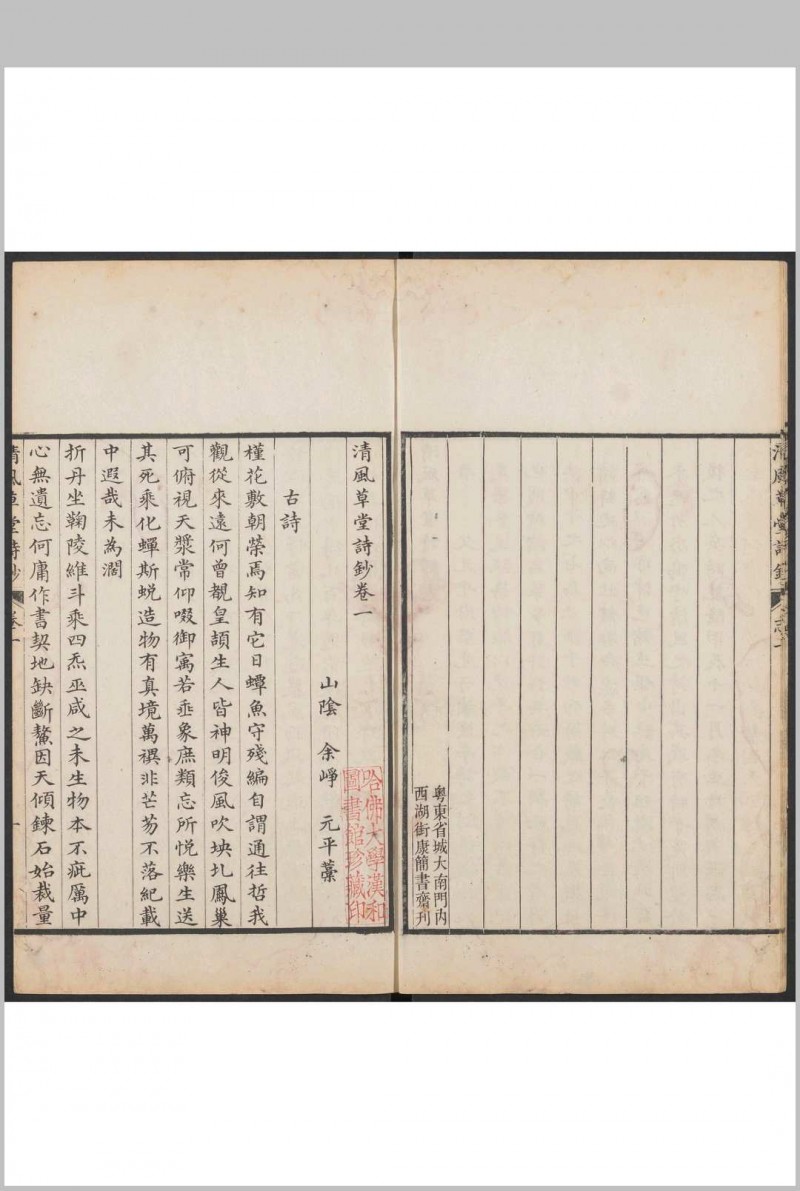 粤東省城大南門內
西湖街康簡書齋刊
清風草堂詩鈔卷一
山陰 余崢 元平藳
哈佛大學漢和
圖書館珍藏印
古詩
槿花敷朝榮焉知有它日蟫魚守殘編自謂通往哲我
觀從來遠何曾覩皇頡生人皆神明俊風吹坱圠鳳巢
可俯視天漿常仰啜御寓若垂象庶類忘所悅樂生送
其死乘化蟬斯蛻造物有真境萬禩非芒芴不落紀載
中遐哉未為濶
折丹坐鞠陵維斗乘四炁巫咸之未生物本不疵厲中
心無遺忘何庸作書契地缺斷鰲因天傾鍊石始裁量
清風草堂詩鈔 卷一 一